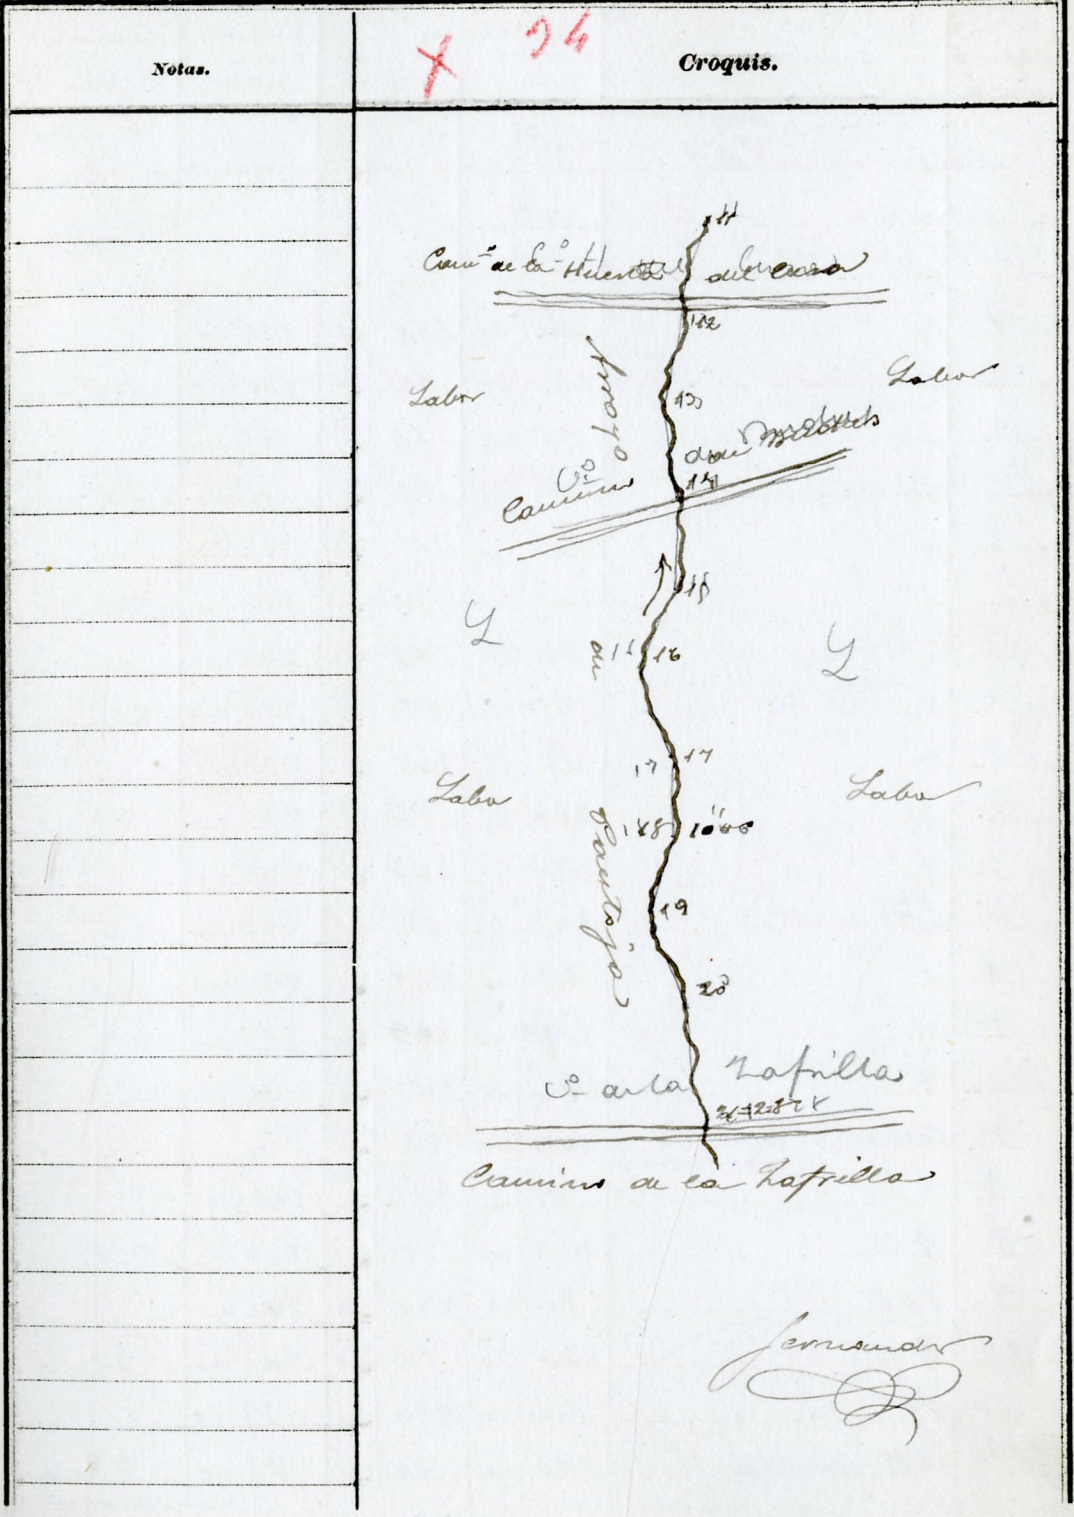 Notas.
X 94
Croquis.
11
Cam.º de la Huerta del Cura
12
Labor
Labor
Arroyo
13
Cº
Camino de
14
15
L
L
de
16
17 17
Labor
Labor
18
Pantoja
19
20
Cº de la Zafrilla
Camino de la Zafrilla
Fernandez